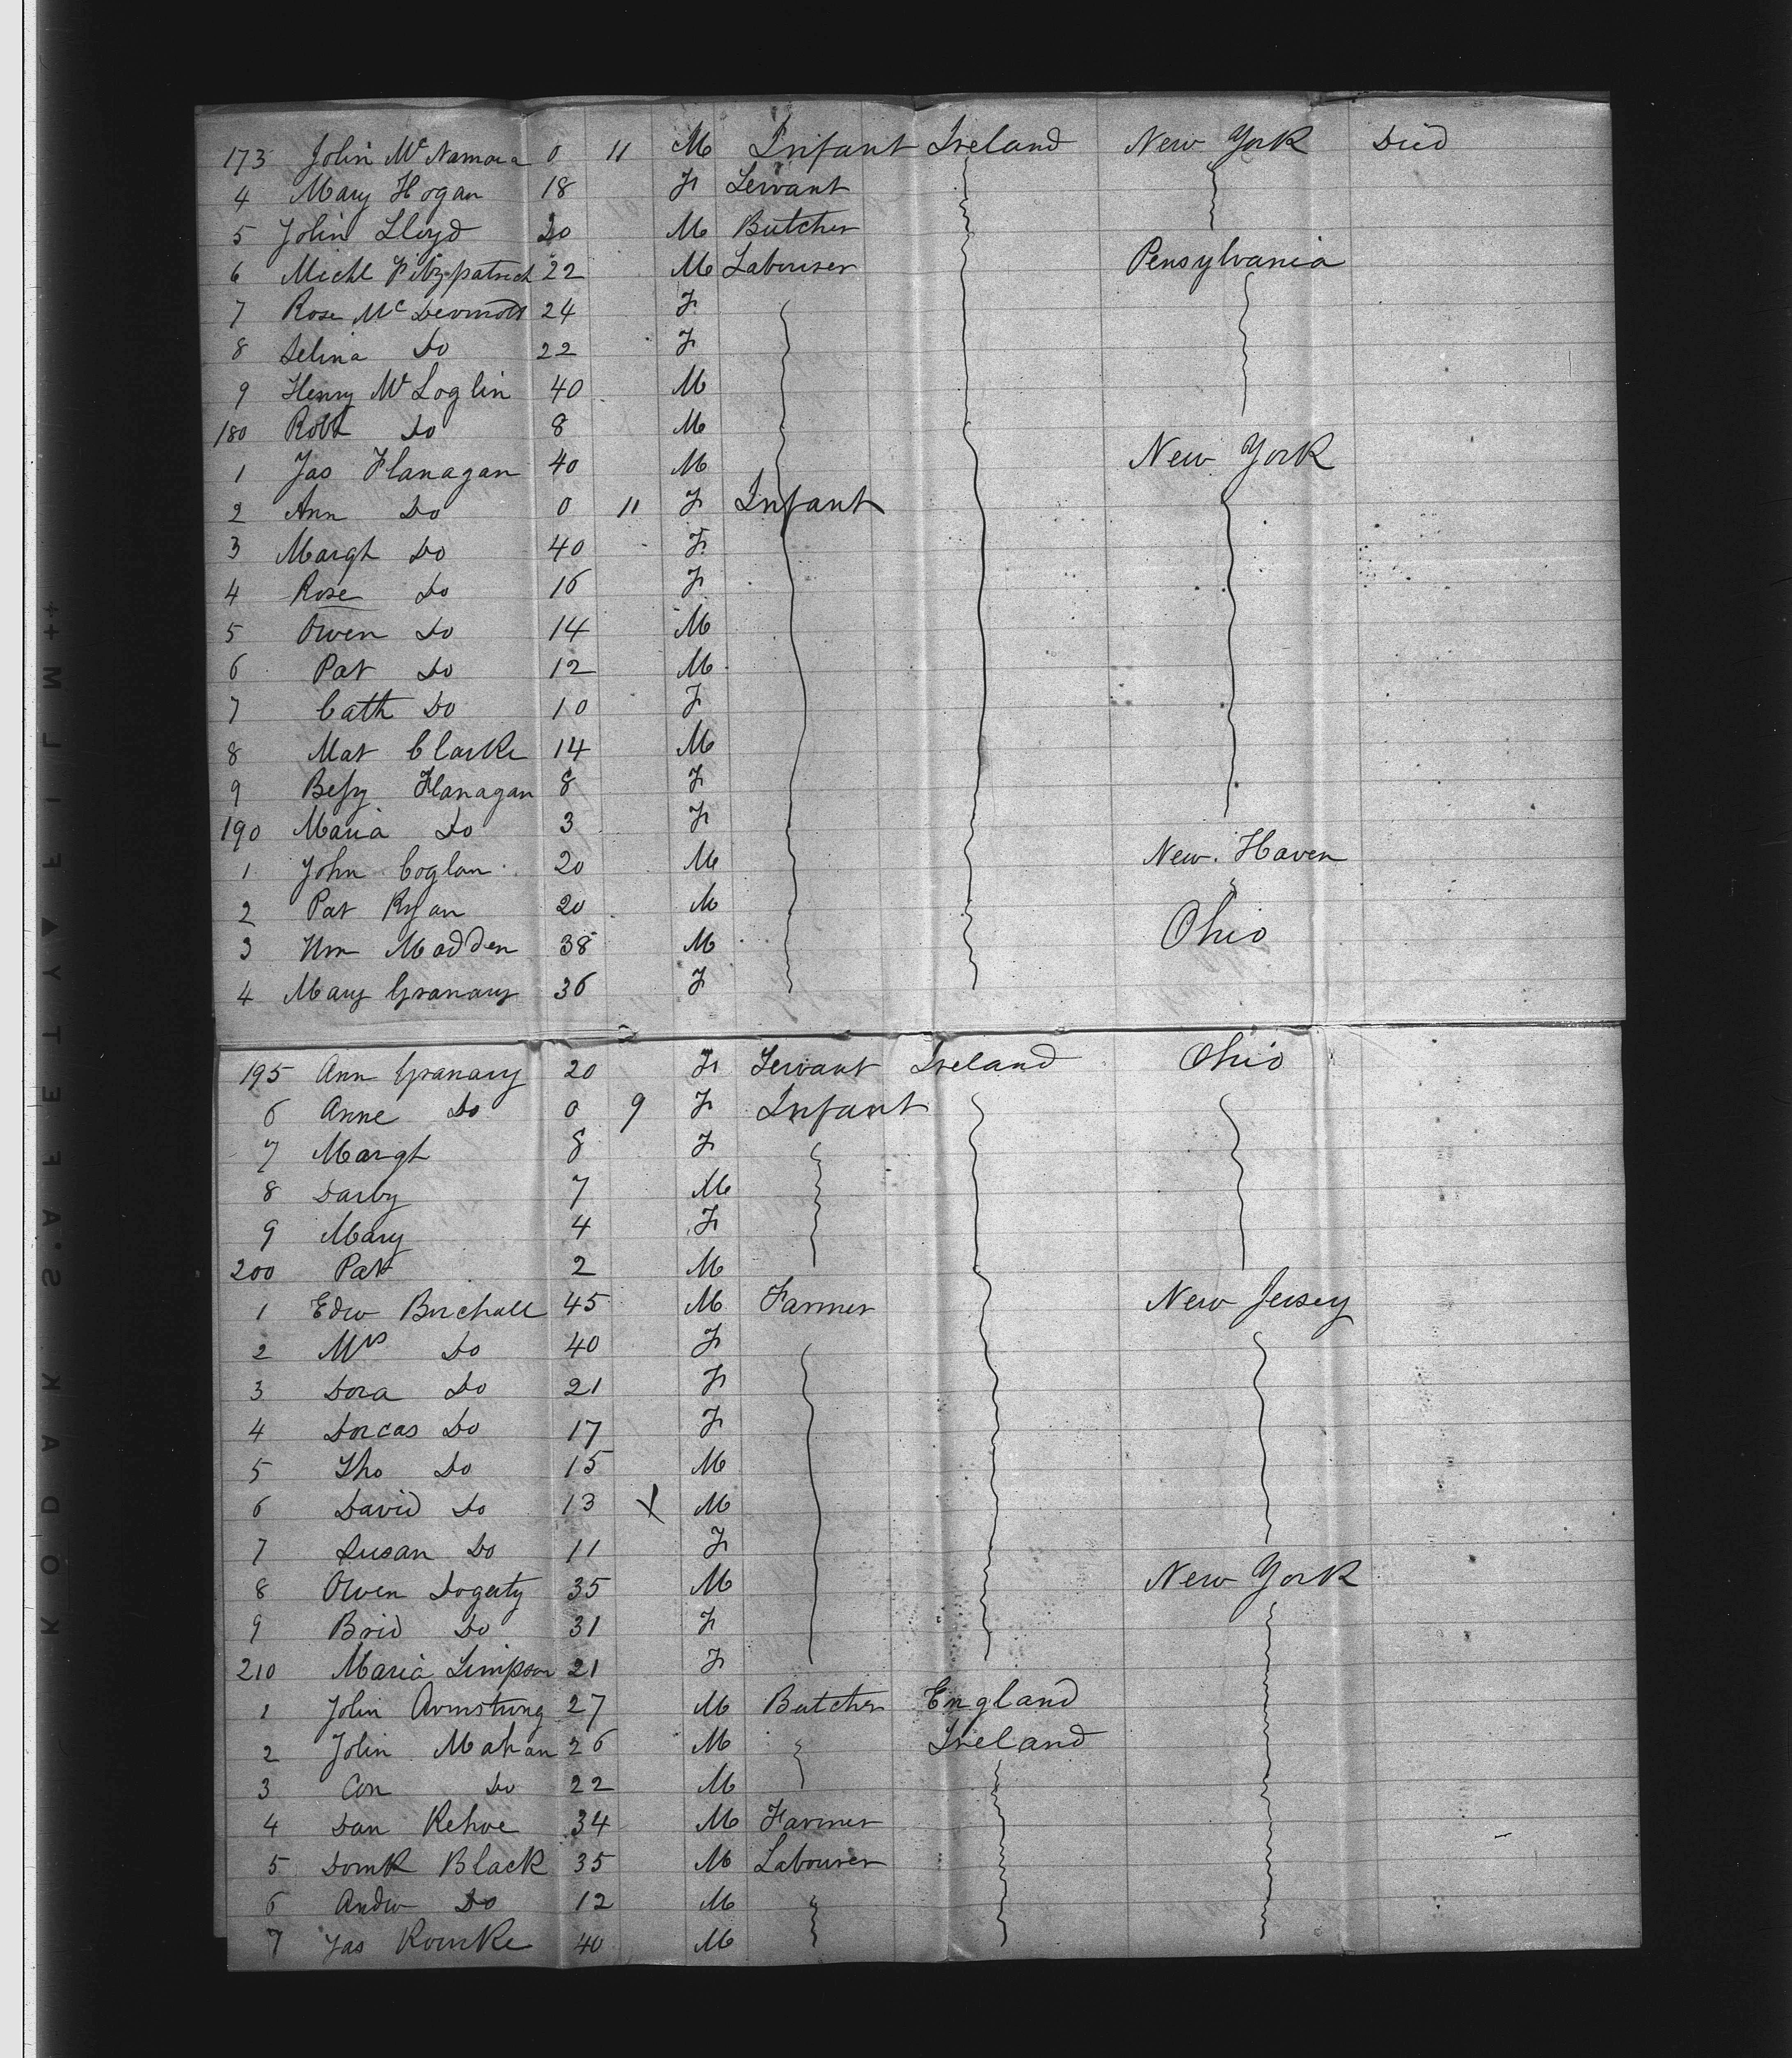 173 John McNamara 0 11 M Infant Ireland New York Died
4 Mary Hogan 18 F Servant
5 John Lloyd 20 M Butcher
6 Michl Fitzpatrick 22 M Labourer Pensylvania
7 Rose McDermott 24 F
8 Selina Do 22 F
9 Henry McLoglin 40 M
180 Robt Do 8 M
1 Jas Flanagan 40 M New York
2 Ann Do 0 11 F Infant
3 Margt Do 40 F
4 Rose Do 16 F
5 Owen Do 14 M
6 Pat Do 12 M
7 Cath Do 10 F
8 Mat Clarke 14 M
9 Bessy Flanagan 8 F
190 Maria Do 3 F
1 John Coglan 20 M New Haven
2 Pat Ryan 20 M
3 Wm Madden 38 M Ohio
4 Mary Granary 36 F
195 Ann Granary 20 F Servant Ireland Ohio
6 Anne Do 0 9 F Infant
7 Margt 8 F
8 Darby 7 M
9 Mary 4 F
200 Pat 2 M
1 Edw Birchall 45 M Farmer New Jersey
2 Mrs Do 40 F
3 Dora Do 21 F
4 Dorcas Do 17 F
5 Tho Do 15 M
6 David Do 13 X M
7 Susan Do 11 F
8 Owen Dogerty 35 M New York
9 Brid Do 31 F
210 Maria Simpson 21 F
1 John Armstrong 27 M Butcher England
2 John Mahan 26 M Ireland
3 Con Do 22 M
4 Dan Kehoe 34 M Farmer
5 Domk Black 35 M Labourer
6 Andw Do 12 M
7 Jas Rourke 40 M
KODAK·S.A.FETY▲FILM++